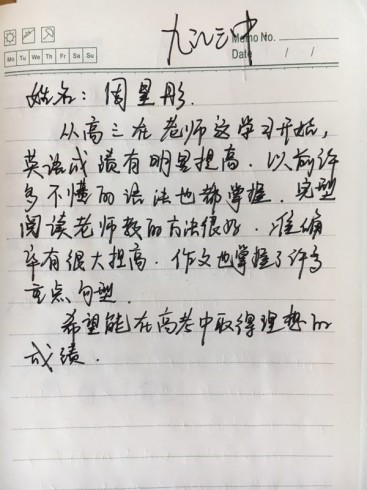 九江三中
Memo No.
Mo Tu We Th Fr Sa Su
Date / /
姓名：周星彤.
从高三在老师这学习开始，
英语成绩有明显提高．以前许
多不懂的语法也都掌握．完型
阅读老师教的方法很好．准确
率有很大提高．作文也掌握了许多
重点句型．
希望能在高考中取得理想的
成绩．